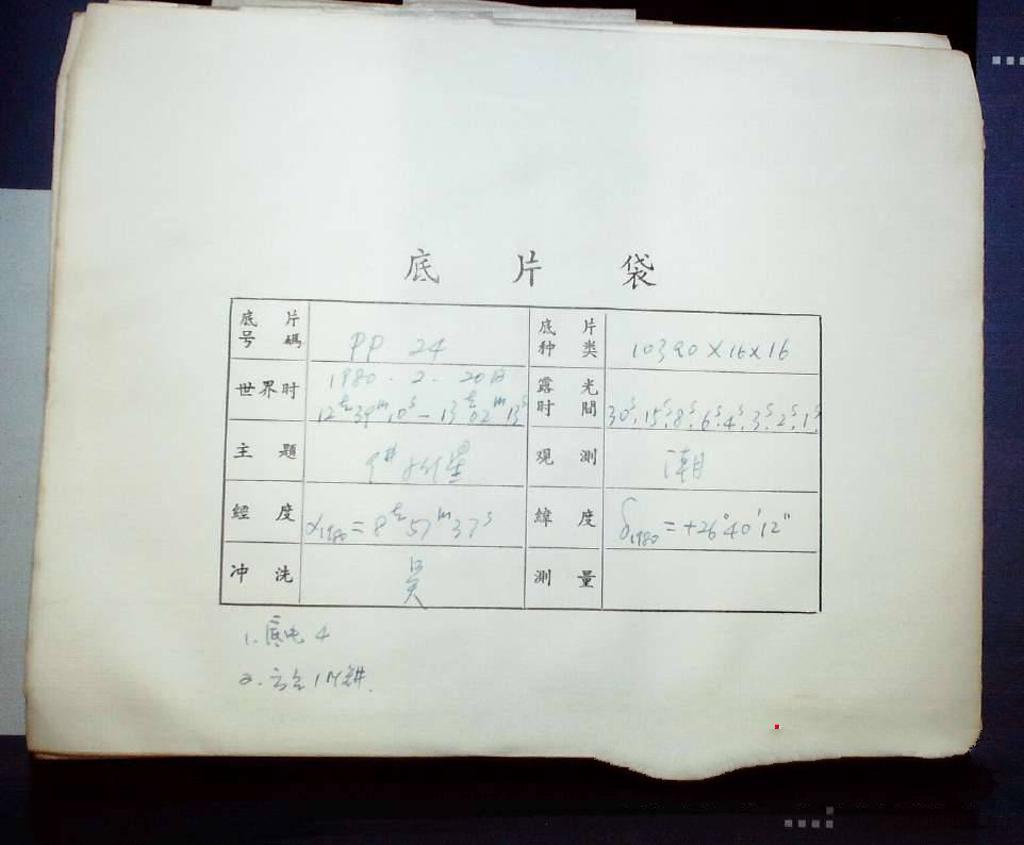 底片袋
底片号碼 PP 24 底片种类 10390×16×16
世界时 1980.2.20日 露光时間
12时39m10s-13时02m13s 30s,15s,8s,6s,4s,3s,2s,1s
主題 观測 潮
經度 α1980=8时57m37s 緯度 δ1980=+26°40′12″
冲洗 吴 測量
1. 4
2.